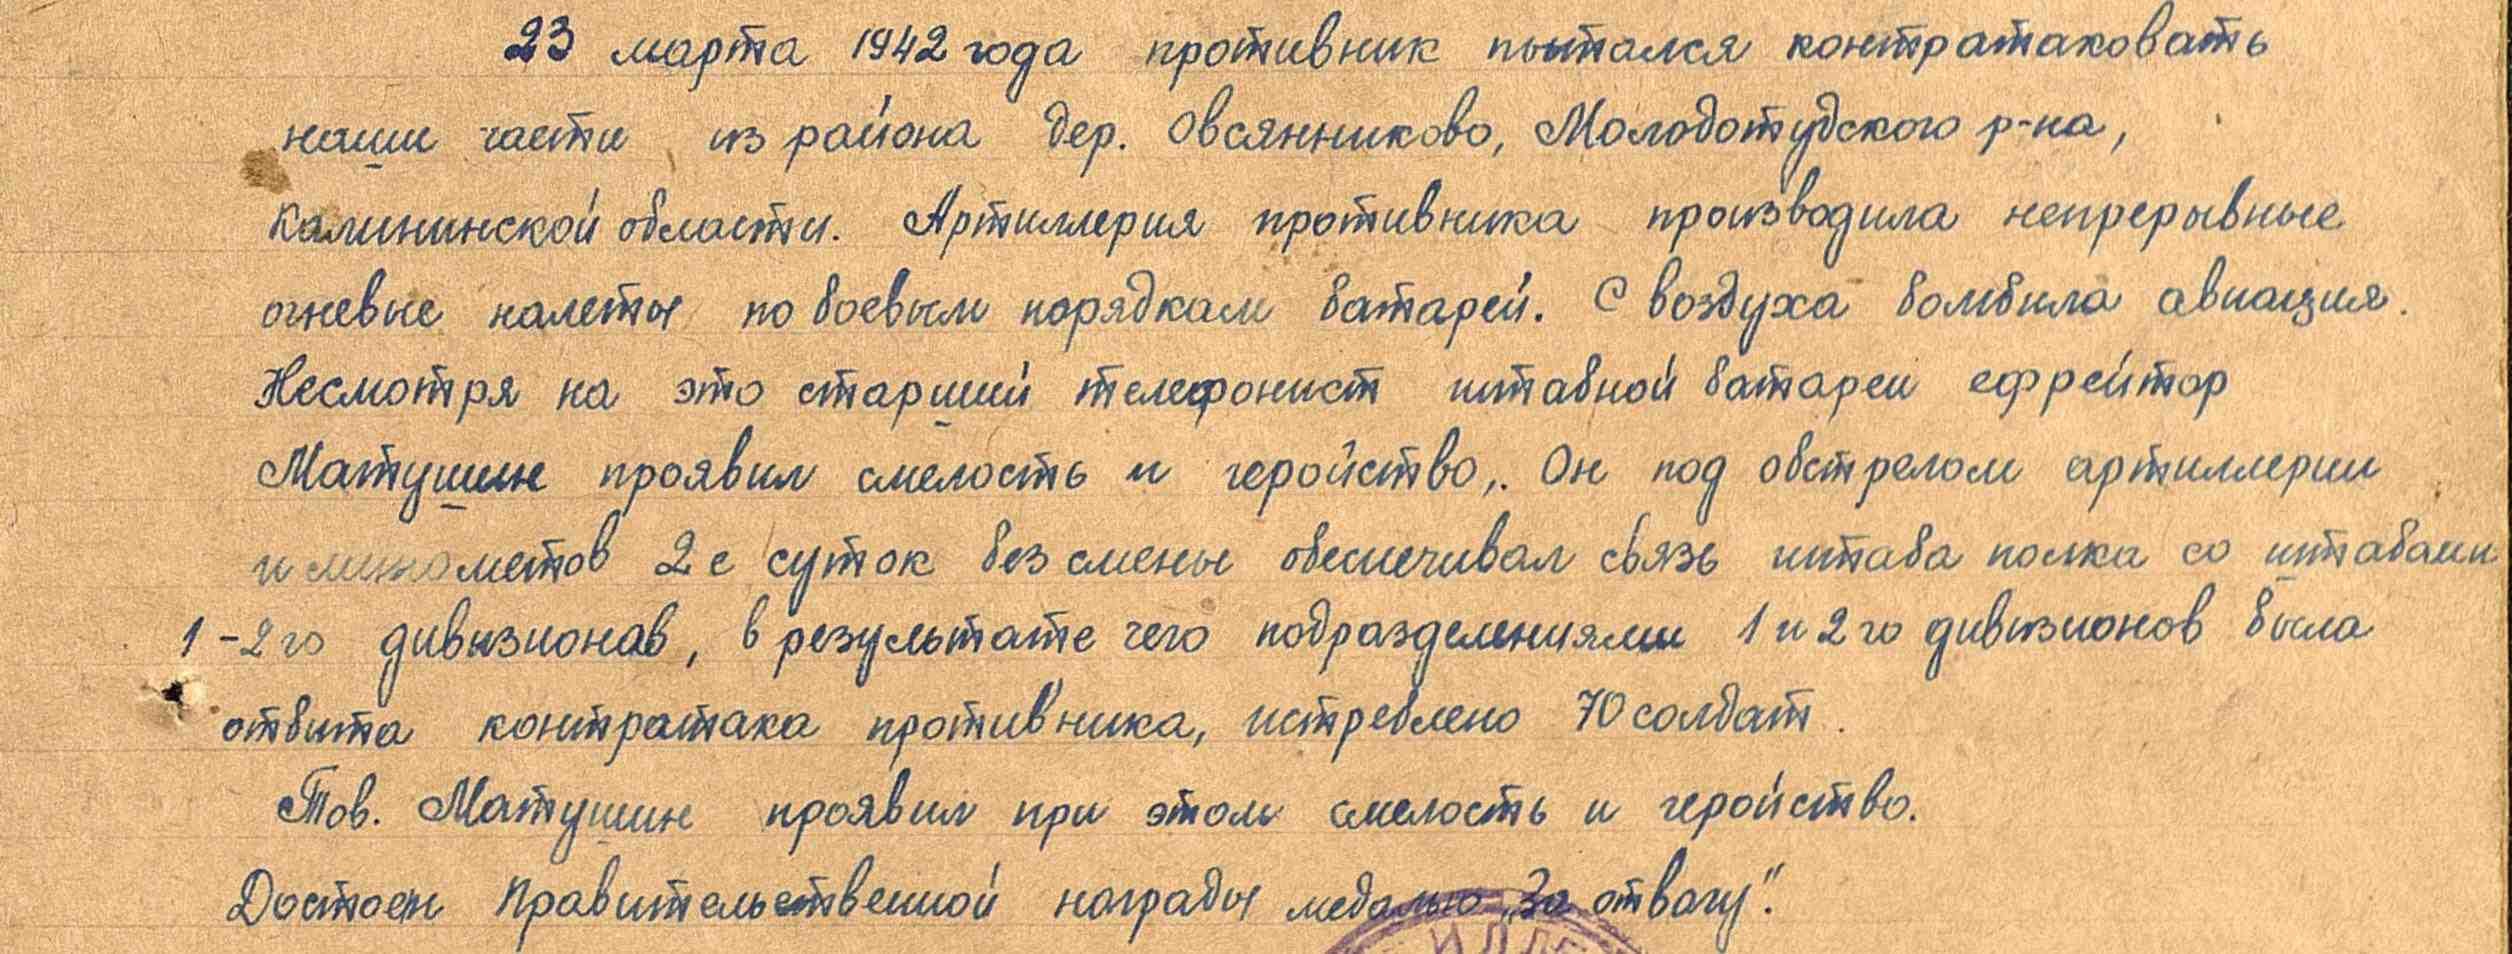 23 марта 1942 года противник пытался контратаковать
наши части из района дер. Овсянниково, Молодотудского р-на,
Калининской области. Артиллерия противника производила непрерывные
огневые налеты по боевым порядкам батарей. С воздуха бомбила авиация.
Несмотря на это старший телефонист штабной батареи ефрейтор
Матушин проявил смелость и геройство,. Он под обстрелом артиллерии
и минометов 2е суток без смены обеспечивал связь штаба полка со штабами
1-2го дивизионов, в результате чего подразделениями 1 и 2го дивизионов была
отбита контратака противника, истреблено 70 солдат.
Тов. Матушин проявил при этом смелость и геройство.
Достоен Правительственной награды медалью „За отвагу".